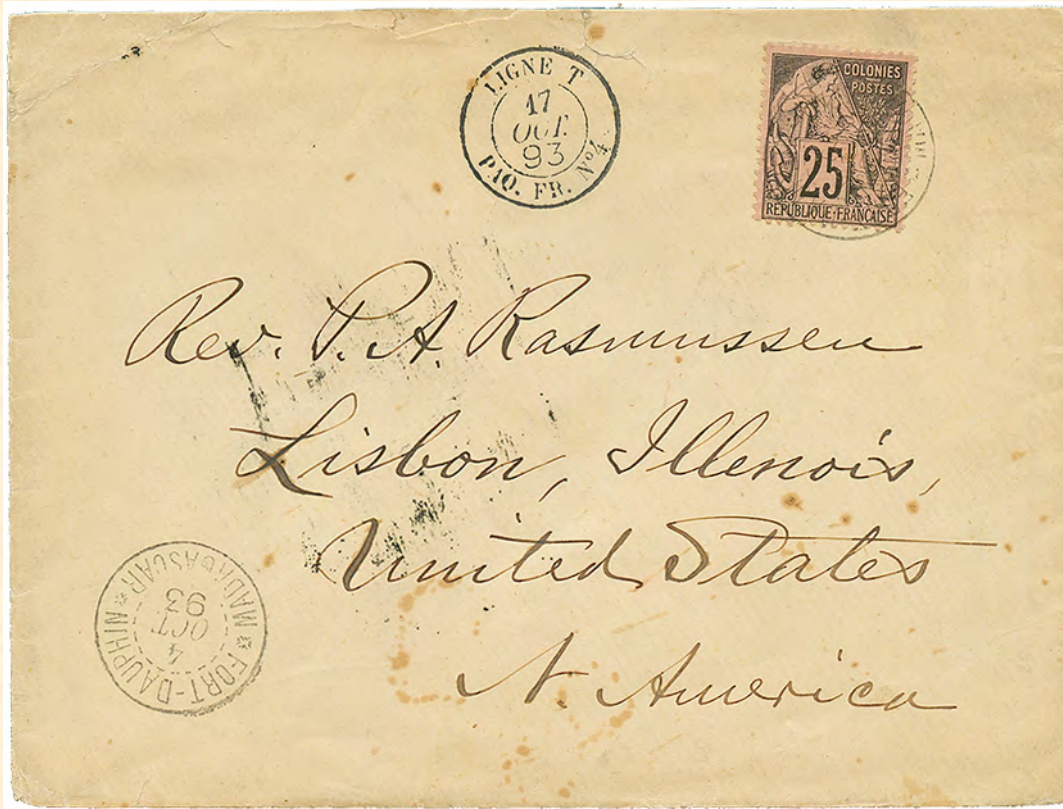 LIGNE T
17
OCT.
93
PAQ. FR. Nº4
COLONIES
POSTES
25
REPUBLIQUE-FRANÇAISE
Rev. P. A. Rasmussen
Lisbon, Illenois,
United States
N. America
FORT-DAUPHIN
4
OCT
93
MADAGASCAR